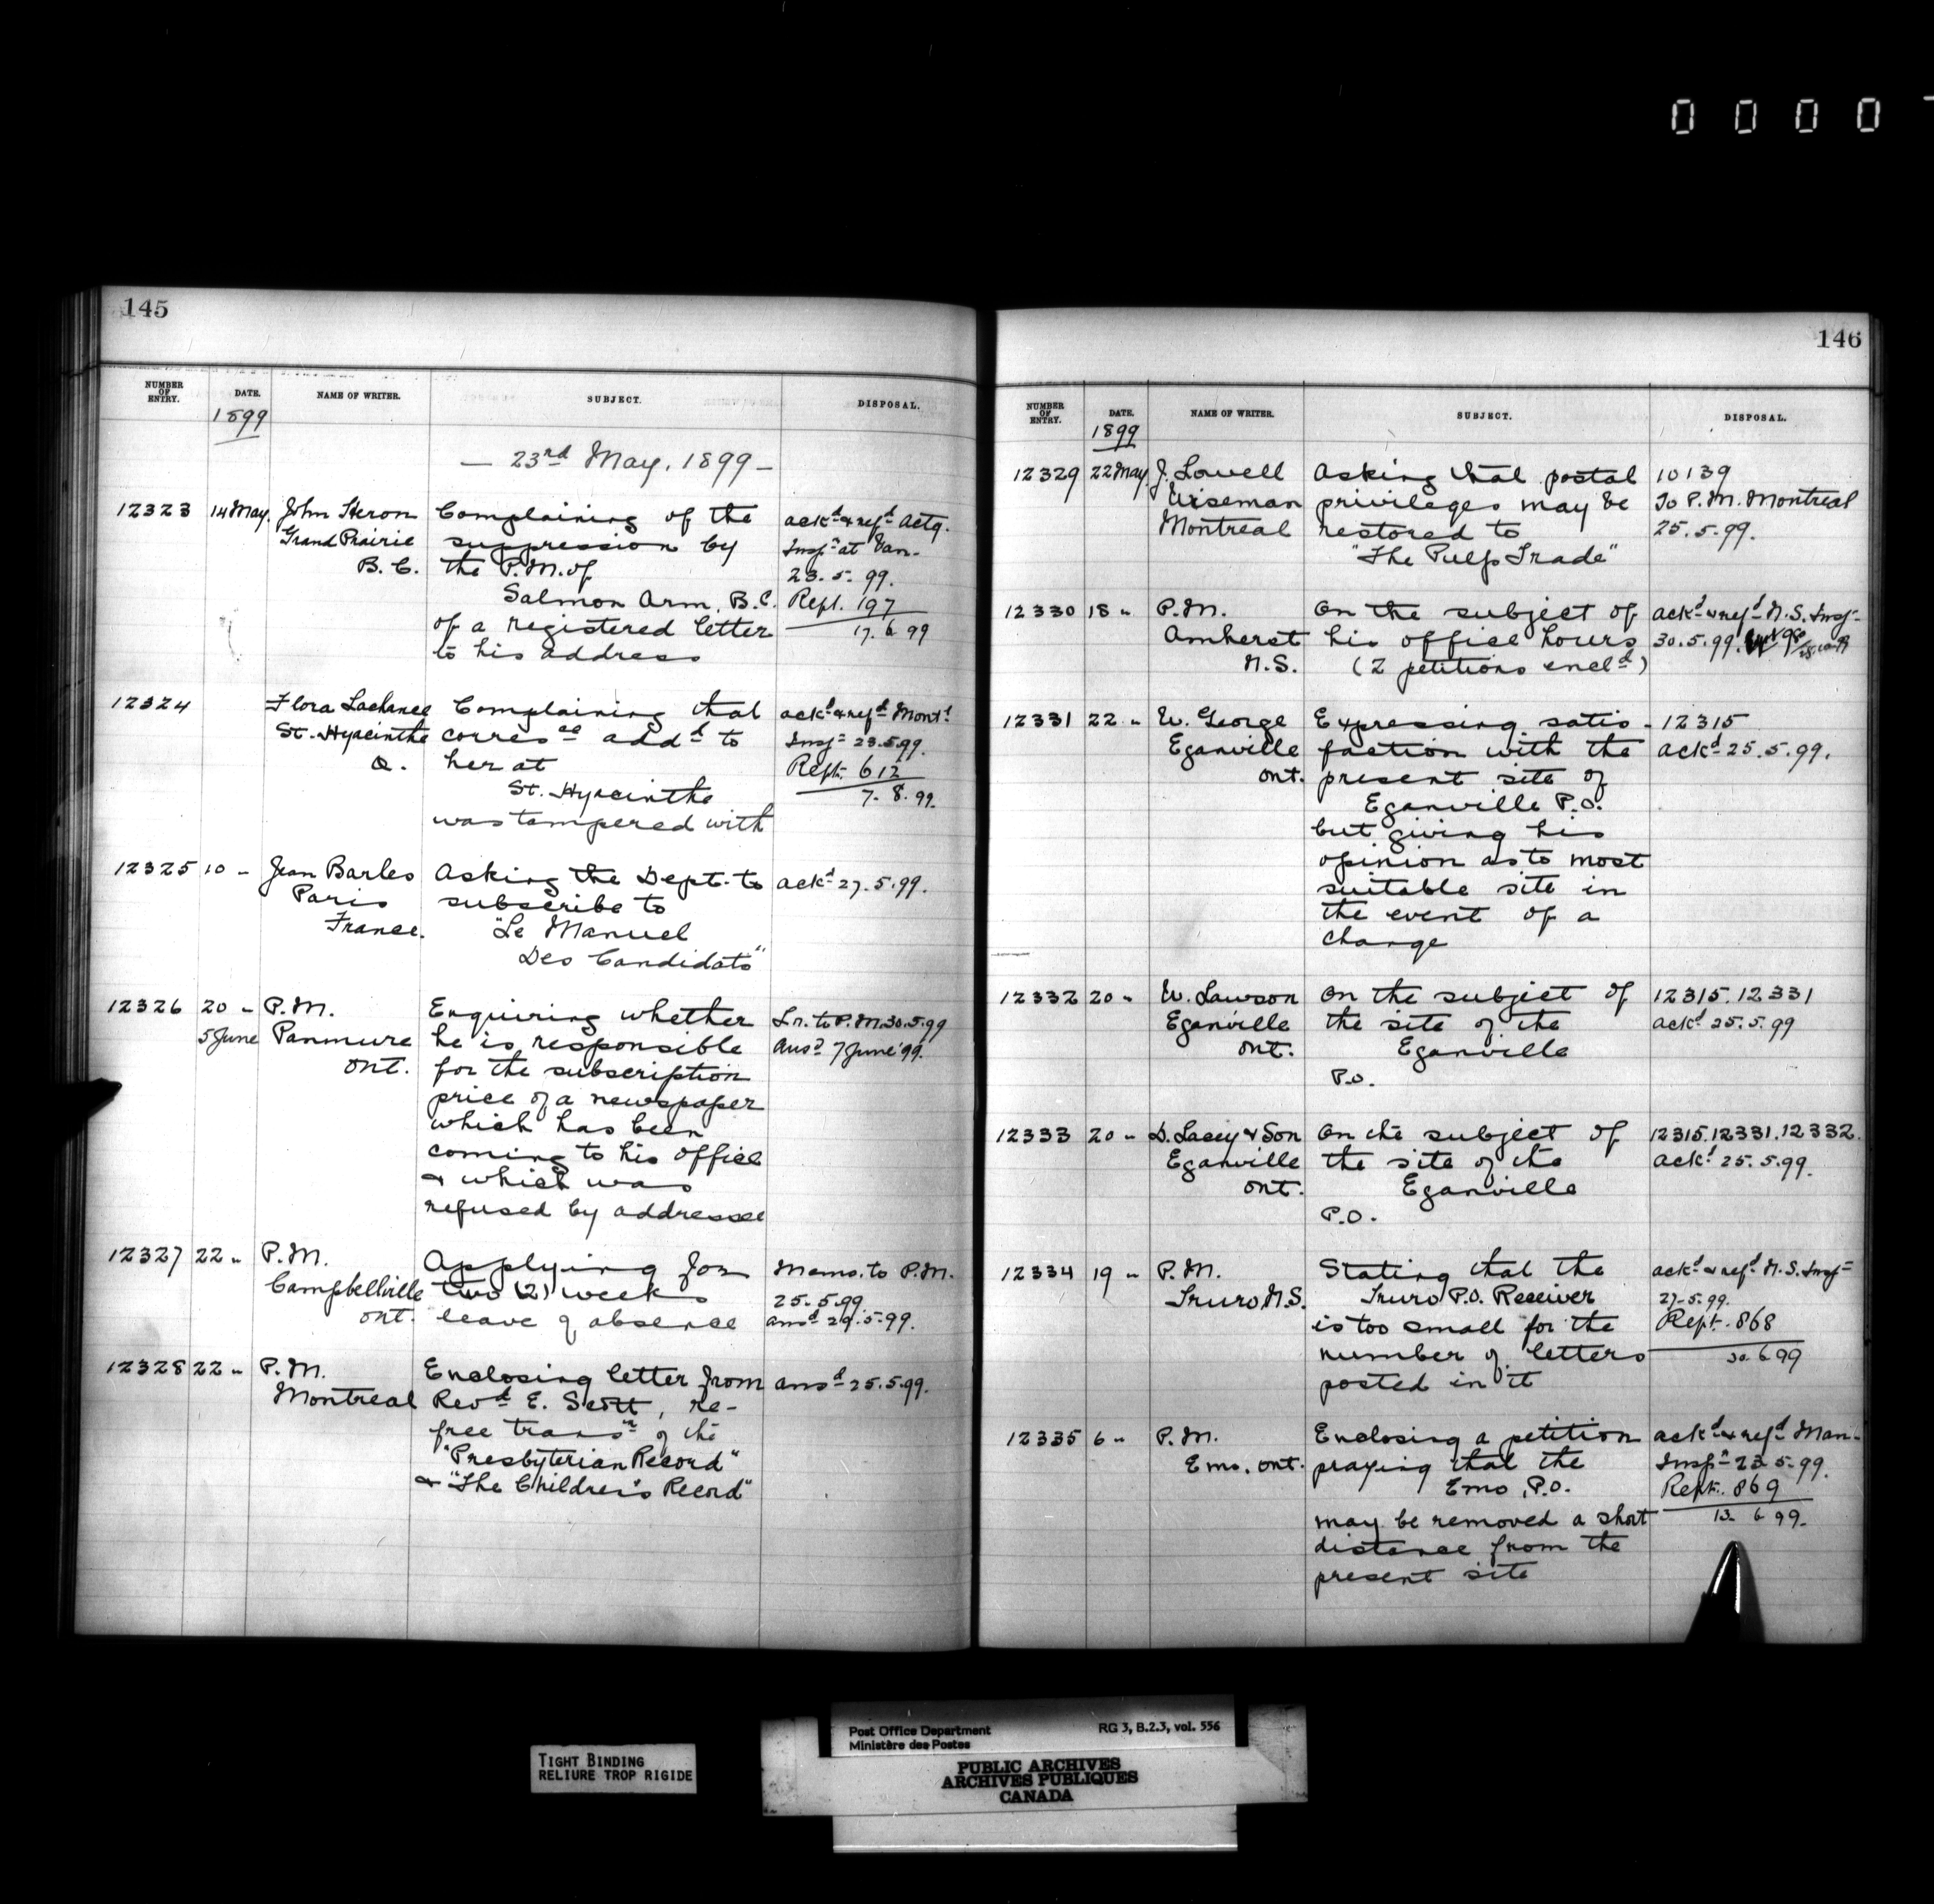 0 0 0 0
145
NUMBER OF ENTRY. DATE. NAME OF WRITER. SUBJECT. DISPOSAL.
1899
— 23rd May, 1899 —
12323 14 May. John Heron Complaining of the ackd & refd Actg.
Grand Prairie suppression by Inspr at Van-
B.C. the P.M. of 23.5.99.
Salmon Arm, B.C. Rept. 197
of a registered letter 17.6.99
to his address
12324 Flora Lachance Complaining that ackd & refd Montl
St. Hyacinthe corresce addd to Inspr 23.5.99.
Q. her at Rept. 612
St. Hyacinthe 7.8.99.
was tampered with
12325 10 " Jean Barles Asking the Dept. to ackd 27.5.99.
Paris subscribe to
France. "Le Manuel
Des Candidats"
12326 20 " P.M. Enquiring whether Lr. to P.M. 30.5.99
5 June Panmure he is responsible Ansd 7 June '99.
Ont. for the subscription
price of a newspaper
which has been
coming to his office
& which was
refused by addressee
12327 22 " P.M. Applying for Memo. to P.M.
Campbellville two (2) weeks 25.5.99.
Ont. leave of absence ansd 29.5.99.
12328 22 " P.M. Enclosing letter from ansd 25.5.99.
Montreal Revd E. Scott, re-
free transn of the
"Presbyterian Record"
& "The Children's Record"
146
NUMBER OF ENTRY. DATE. NAME OF WRITER. SUBJECT. DISPOSAL.
1899
12329 22 May. J. Lowell Asking that postal 10139
Wiseman privileges may be To P.M. Montreal
Montreal restored to 25.5.99.
"The Pulp Trade"
12330 18 " P.M. On the subject of ackd & refd N.S. Insp
Amherst his office hours 30.5.99.
N.S. (2 petitions encld)
12331 22 " W. George Expressing satis- 12315
Eganville faction with the ackd 25.5.99.
Ont. present site of
Eganville P.O.
but giving his
opinion as to most
suitable site in
the event of a
change
12332 20 " W. Lawson On the subject of 12315. 12331
Eganville the site of the ackd 25.5.99
Ont. Eganville
P.O.
12333 20 " D. Lacey & Son On the subject of 12315. 12331. 12332.
Eganville the site of the ackd 25.5.99.
Ont. Eganville
P.O.
12334 19 " P.M. Stating that the ackd & refd N.S. Insp
Truro N.S. Truro P.O. Receiver 27.5.99.
is too small for the Rept. 868
number of letters 30.6.99
posted in it
12335 6 " P.M. Enclosing a petition ackd & refd Man-
Emo, Ont. praying that the Inspr 23.5.99.
Emo, P.O. Rept. 869
may be removed a short 13.6.99.
distance from the
present site
TIGHT BINDING
RELIURE TROP RIGIDE
Post Office Department RG 3, B.2.3, vol. 556
Ministère des Postes
PUBLIC ARCHIVES
ARCHIVES PUBLIQUES
CANADA